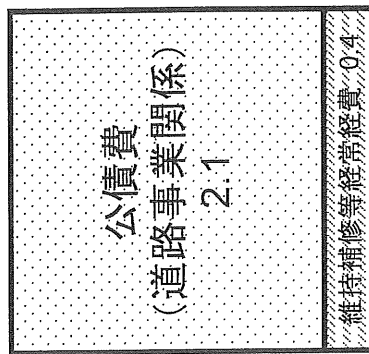 公債費
(道路事業関係)
2.1
維持補修等経常経費 0.4